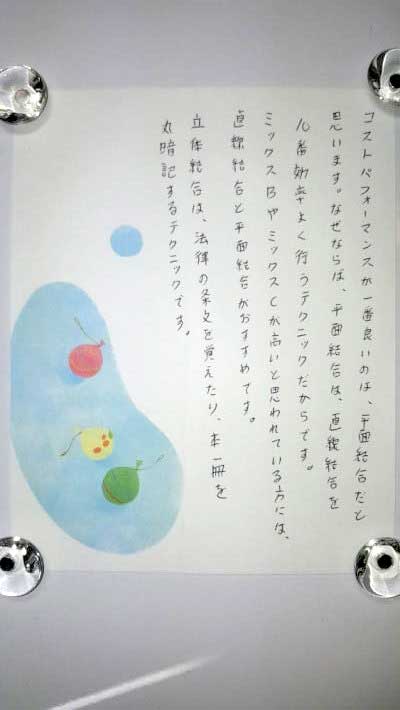 コストパフォーマンスが一番良いのは、平面結合だと
思います。なぜならば、平面結合は、直線結合を
一番効率よく行うテクニックだからです。
ミックスBやミックスCが高いと思われている方には、
直線結合と平面結合がおすすめです。
立体結合は、法律の条文を覚えたり、本一冊を
丸暗記するテクニックです。